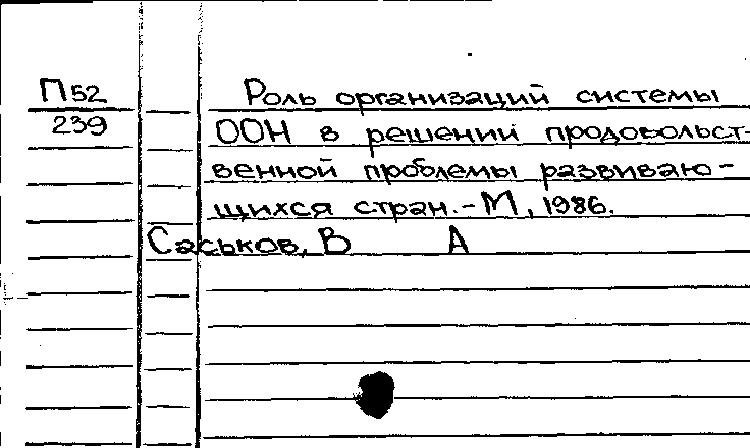 П52 Роль организаций системы
239 ООН в решении продовольст-
венной проблемы развиваю-
щихся стран.-М, 1986.
Саськов, В А